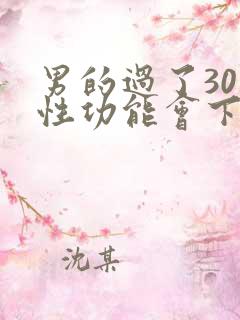 男的過了30
性功能會下
沈某